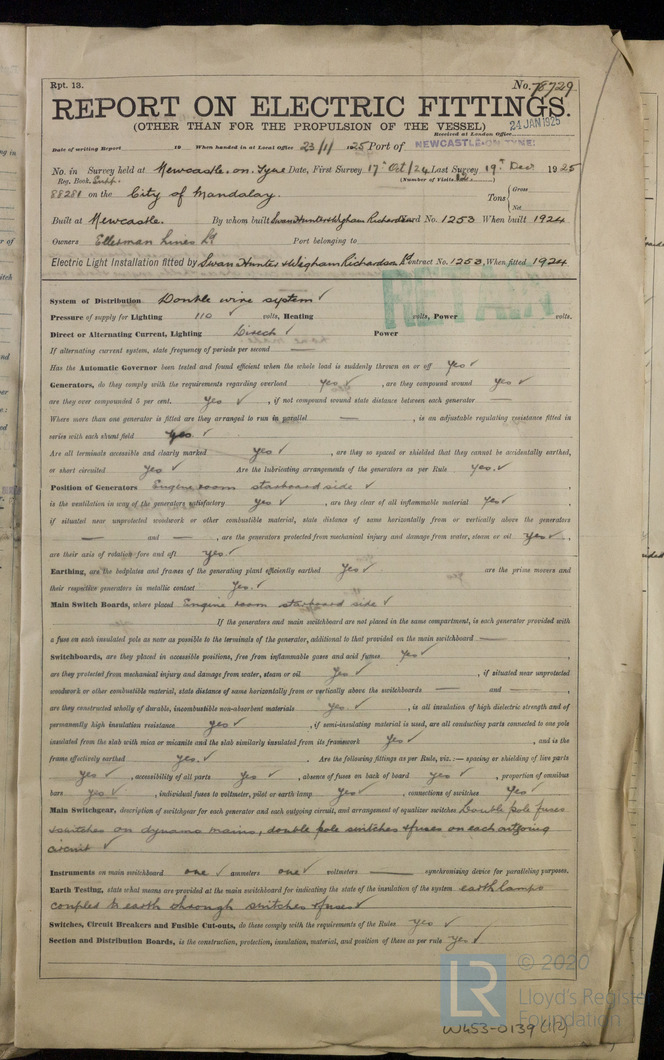 Rpt. 13.
No. 78729
REPORT ON ELECTRIC FITTINGS.
(OTHER THAN FOR THE PROPULSION OF THE VESSEL)
24 JAN 1925
Received at London Office
Date of writing Report 19 When handed in at Local Office 23/11/1925 Port of NEWCASTLE-ON-TYNE:
No. in Survey held at Newcastle. on. Tyne Date, First Survey 17th Oct/24 Last Survey 19th Dec 1925
Reg. Book. (Number of Visits )
88281 on the City of Mandalay. Tons { Gross
Net
Built at Newcastle. By whom built Swan Hunter & Wigham Richardson Yard No. 1253 When built 1924
Owners Ellerman Lines Ld Port belonging to
Electric Light Installation fitted by Swan Hunter & Wigham Richardson Ld Contract No. 1253 When fitted 1924
RETAIN
System of Distribution Double wire system ✓
Pressure of supply for Lighting 110 ✓ volts, Heating volts, Power volts.
Direct or Alternating Current, Lighting Direct ✓ Power
If alternating current system, state frequency of periods per second —
Has the Automatic Governor been tested and found efficient when the whole load is suddenly thrown on or off yes ✓
Generators, do they comply with the requirements regarding overload yes ✓ , are they compound wound yes ✓
are they over compounded 5 per cent. yes ✓ , if not compound wound state distance between each generator —
Where more than one generator is fitted are they arranged to run in parallel — , is an adjustable regulating resistance fitted in
series with each shunt field yes. ✓
Are all terminals accessible and clearly marked yes ✓ , are they so spaced or shielded that they cannot be accidentally earthed,
or short circuited yes ✓ Are the lubricating arrangements of the generators as per Rule yes. ✓
Position of Generators Engine room starboard side ✓
is the ventilation in way of the generators satisfactory yes ✓ , are they clear of all inflammable material yes ✓
if situated near unprotected woodwork or other combustible material, state distance of same horizontally from or vertically above the generators
— and — , are the generators protected from mechanical injury and damage from water, steam or oil yes ✓
are their axis of rotation fore and aft yes. ✓
Earthing, are the bedplates and frames of the generating plant efficiently earthed yes ✓ are the prime movers and
their respective generators in metallic contact yes. ✓
Main Switch Boards, where placed Engine room starboard side ✓
If the generators and main switchboard are not placed in the same compartment, is each generator provided with
a fuse on each insulated pole as near as possible to the terminals of the generator, additional to that provided on the main switchboard —
Switchboards, are they placed in accessible positions, free from inflammable gases and acid fumes yes ✓
are they protected from mechanical injury and damage from water, steam or oil yes ✓ , if situated near unprotected
woodwork or other combustible material, state distance of same horizontally from or vertically above the switchboards — and — ,
are they constructed wholly of durable, incombustible non-absorbent materials yes. ✓ , is all insulation of high dielectric strength and of
permanently high insulation resistance yes ✓ , if semi-insulating material is used, are all conducting parts connected to one pole
insulated from the slab with mica or micanite and the slab similarly insulated from its framework yes ✓ , and is the
frame effectively earthed yes. ✓ . Are the following fittings as per Rule, viz.:— spacing or shielding of live parts
yes ✓ , accessibility of all parts yes ✓ , absence of fuses on back of board yes ✓ , proportion of omnibus
bars yes ✓ , individual fuses to voltmeter, pilot or earth lamp yes ✓ , connections of switches yes ✓
Main Switchgear, description of switchgear for each generator and each outgoing circuit, and arrangement of equalizer switches Double pole fuses
& switches on dynamo mains, double pole switches & fuses on each outgoing
circuit ✓
Instruments on main switchboard one ✓ ammeters one ✓ voltmeters — synchronising device for paralleling purposes.
Earth Testing, state what means are provided at the main switchboard for indicating the state of the insulation of the system earth lamps
coupled to earth through switches & fuses ✓
Switches, Circuit Breakers and Fusible Cut-outs, do these comply with the requirements of the Rules yes ✓
Section and Distribution Boards, is the construction, protection, insulation, material, and position of these as per rule yes ✓
LR © 2020
Lloyd's Register
Foundation
W453-0139 (1/2)